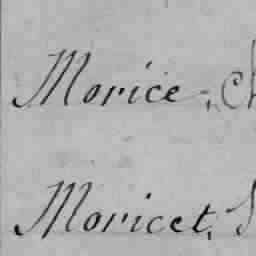 Morice, Ch
Moricet,